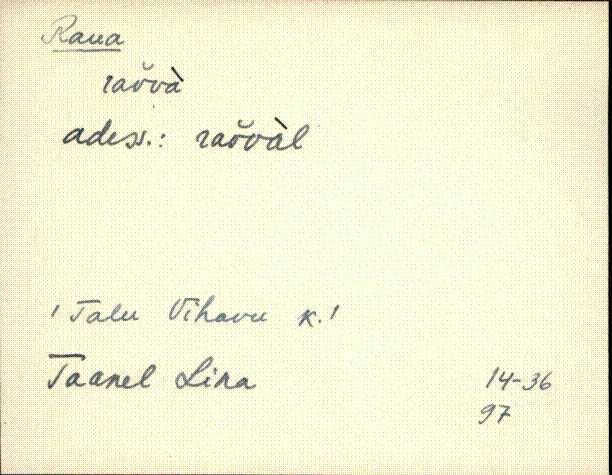 Raua
raŏvà
adess.: raŏvàl
! Talu Vihavu k.!
Taanel Lina
14-36
97